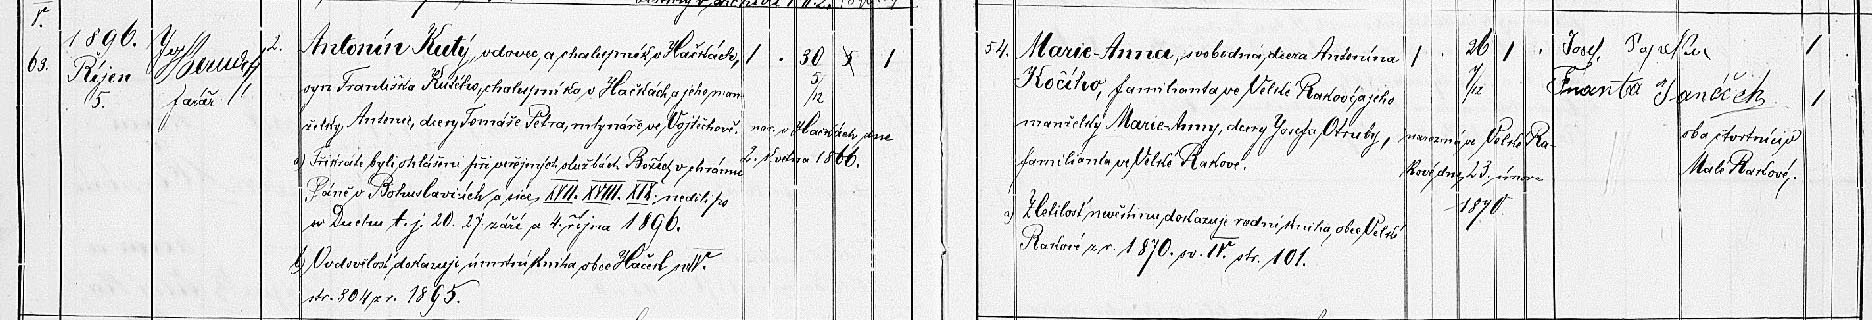 1896.
63. Říjen
5.
farář
2.
Antonín Kutý, vdovec, a chalupník v Hačkách,
syn Františka Kutého, chalupníka v Hačkách, a jeho man-
želky Antonie, dcery Tomáše Petra, mlynáře ve Vojtěchově.
a) Třikráte byli ohlášeni při veřejných službách Božích v chrámu
Páně v Bohuslavicích, a sice XVII. XVIII. XIX. neděli po
sv Duchu t. j. 20. 27. září a 4. října 1896.
b) Ovdovělost dokazuje úmrtní kniha obce Haček sv. IV.
str. 304 z r. 1895.
1 . 30 1
5/12
nar. v Hačkách dne
2. května 1866.
54. Marie Anna, svobodná, dcera Antonína
Kočího, familianta ve Velké Rakové a jeho
manželky Marie Anny, dcery Josefa Otruby,
familianta ve Velké Rakové.
a) Zletilost nevěstinu dokazuje rodní kniha obce Velké
Rakové z r. 1870. sv. IV. str. 101.
1 . 26 1 .
7/12
narozená ve Velké Ra-
kové dne 23. února
1870.
Josef Pospíšil 1
Franta Janáček 1
oba čtvrtníci v
Malé Rakové.